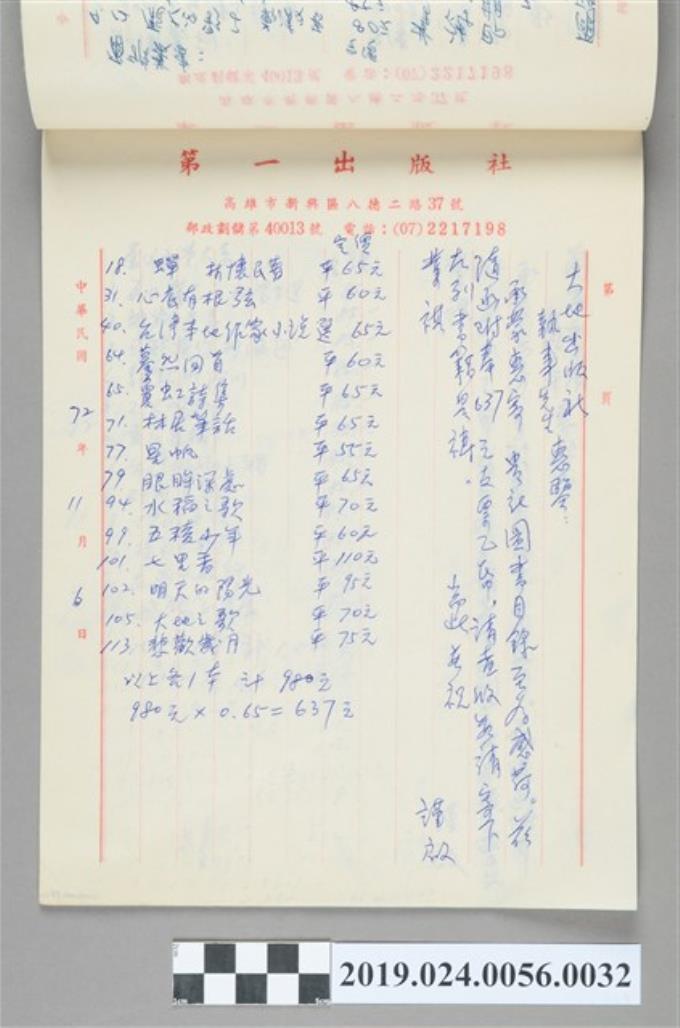 第一出版社
高雄市新興區八德二路37號
郵政劃儲第40013號 電話:(07)2217198
第 頁
大地出版社
執事先生惠鑒:
承蒙惠寄 貴社圖書目錄至為感荷。茲
隨函附奉637元支票乙帋,請查收並請寄下
左列書籍是禱。
耑此並祝
業祺
謹啟
定價
18. 蟬 林懷民著 平65元
31. 心底有根弦 平60元
40. 台灣本地作家小說選 65元
64. 驀然回首 平60元
65. 敻虹詩集 平65元
71. 林居筆話 平65元
77. 星帆 平55元
79. 眼眸深處 平65元
94. 水稻之歌 平70元
99. 五陵少年 平60元
101. 七里香 平110元
102. 明天的陽光 平95元
105. 大地之歌 平70元
113. 悲歡歲月 平75元
以上各1本 計980元
980元×0.65=637元
中華民國72年11月6日
2019.024.0056.0032